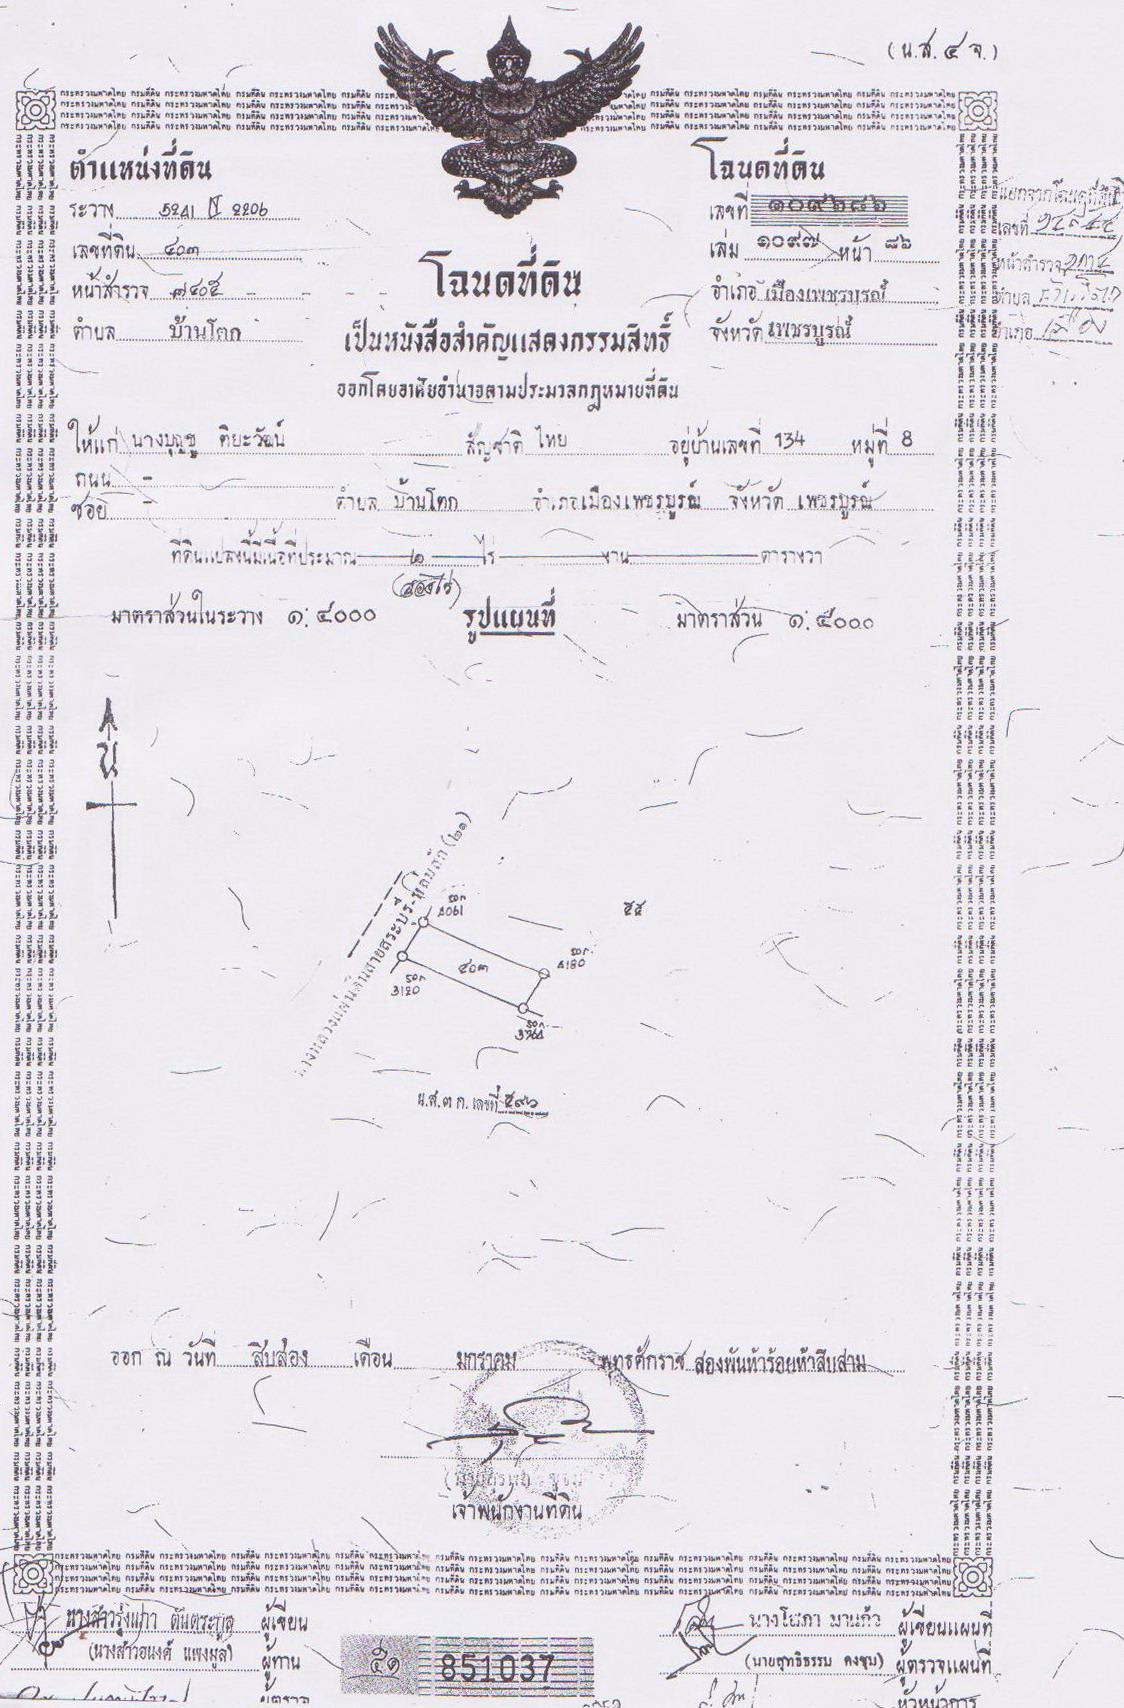 (น.ส.๔ จ.)
ตำแหน่งที่ดิน
ระวาง 5241 IV 2206
เลขที่ดิน ๔๐๓
หน้าสำรวจ ๗๔๐๕
ตำบล บ้านโตก
โฉนดที่ดิน
เลขที่ ๑๐๙๖๘๖
เล่ม ๑๐๙๗ หน้า ๘๖
อำเภอ เมืองเพชรบูรณ์
จังหวัด เพชรบูรณ์
แยกจากโฉนดที่ดิน
เลขที่
หน้าสำรวจ
ตำบล
อำเภอ เมือง
โฉนดที่ดิน
เป็นหนังสือสำคัญแสดงกรรมสิทธิ์
ออกโดยอาศัยอำนาจตามประมวลกฎหมายที่ดิน
ให้แก่ นางบุญชู ติยะวัฒน์ สัญชาติ ไทย อยู่บ้านเลขที่ 134 หมู่ที่ 8
ถนน -
ซอย - ตำบล บ้านโตก อำเภอเมืองเพชรบูรณ์ จังหวัด เพชรบูรณ์
ที่ดินแปลงนี้มีเนื้อที่ประมาณ ๒ ไร่ งาน ตารางวา
(สองไร่)
มาตราส่วนในระวาง ๑:๔๐๐๐ รูปแผนที่ มาตราส่วน ๑:๕๐๐๐
น
ทางหลวงแผ่นดินสายสระบุรี-หล่มสัก (๒๑)
4061
๕๕
๔๐๓
4180
3120
น.ส.๓ ก. เลขที่ ๕๙๖
ออก ณ วันที่ สิบสอง เดือน มกราคม พุทธศักราช สองพันห้าร้อยห้าสิบสาม
เจ้าพนักงานที่ดิน
นางสาวรุ่งนภา ตันตระกูล ผู้เขียน
(นางสาวอนงค์ แพงมูล) ผู้ทาน
ผู้ตรวจ
๕๑ 851037
นางโสภา ผู้เขียนแผนที่
(นายสุทธิธรรม คงชุม) ผู้ตรวจแผนที่
หัวหน้าการ